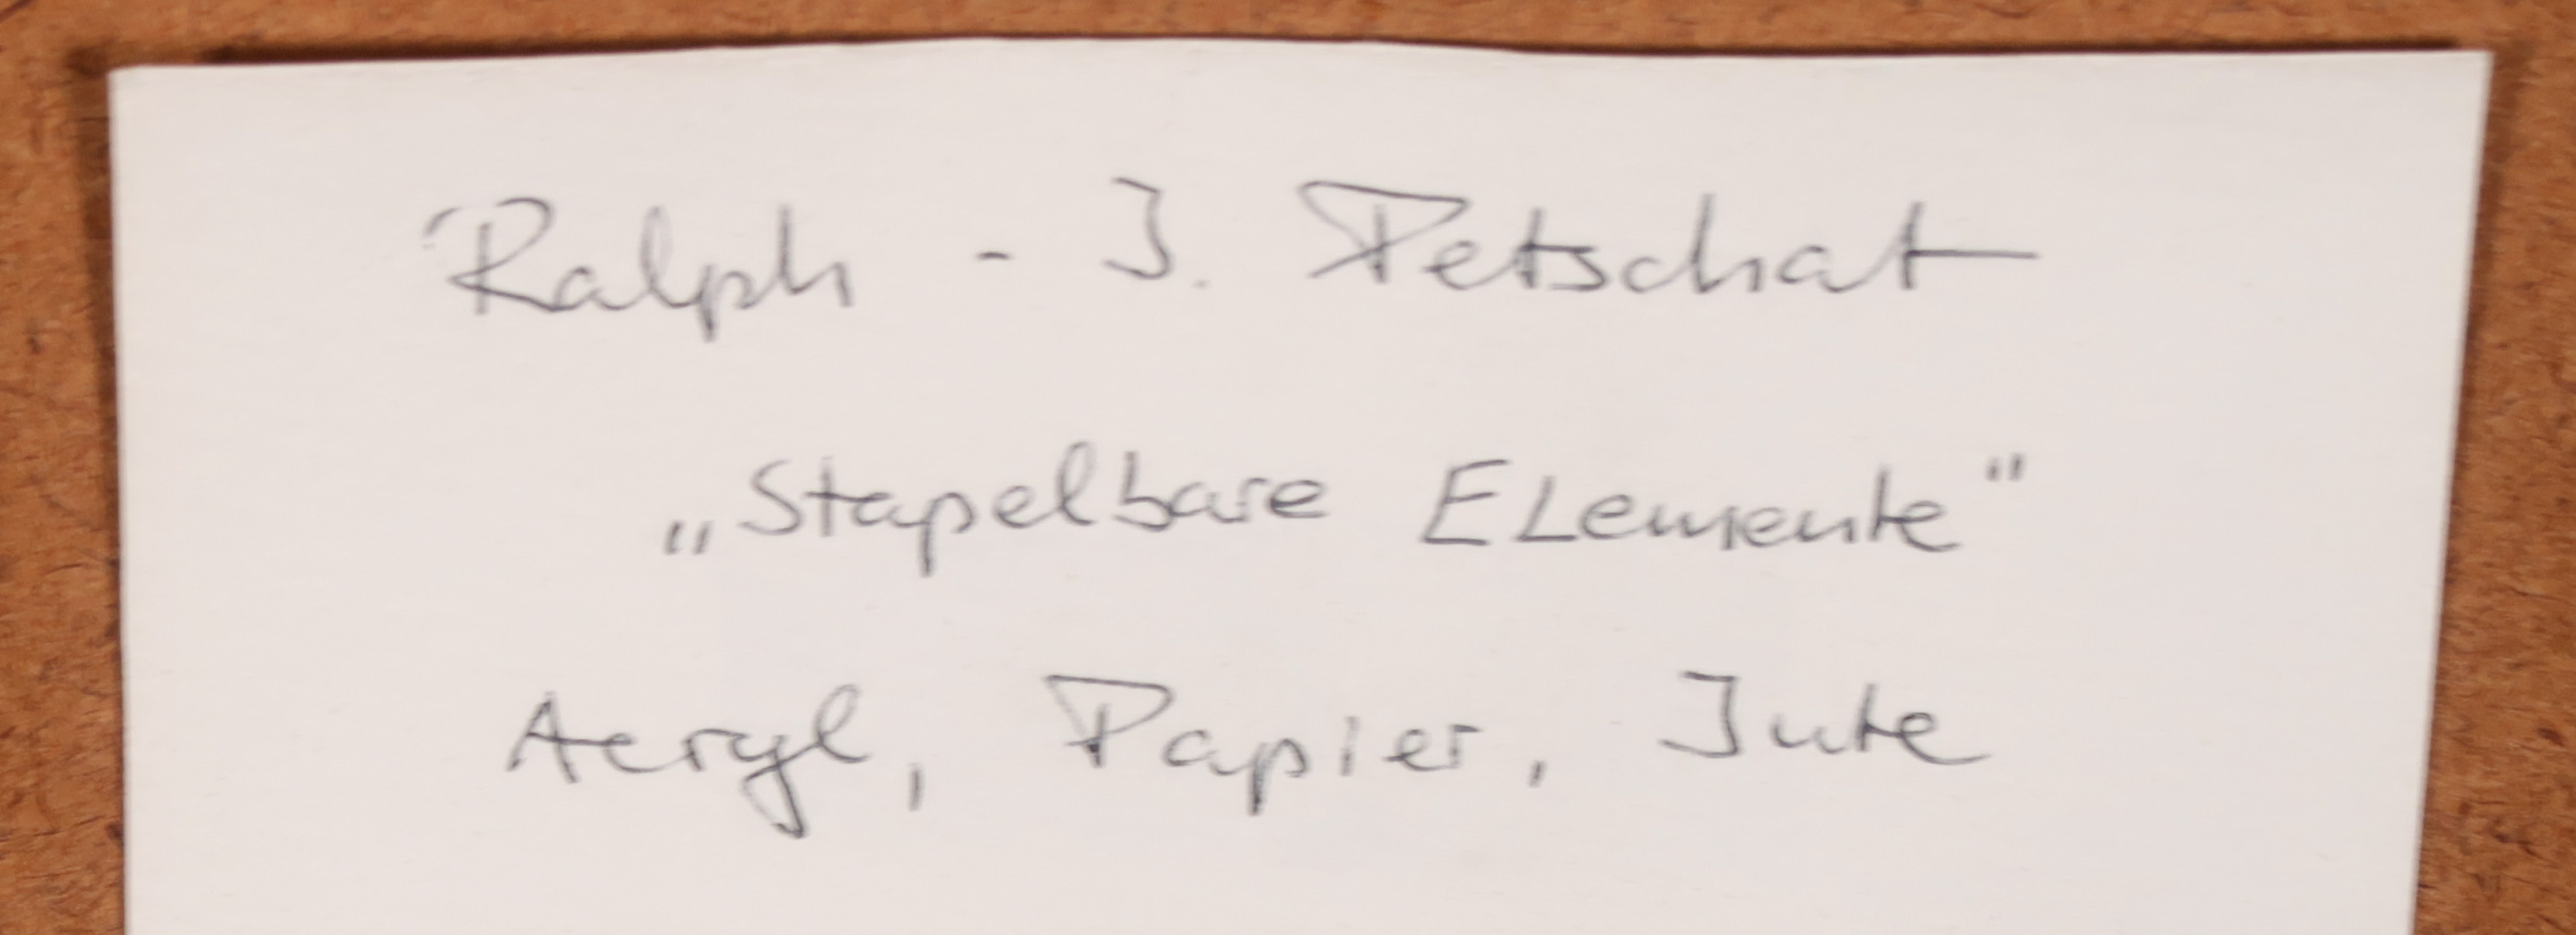 Ralph - J. Petschat
„Stapelbare Elemente"
Acryl, Papier, Jute